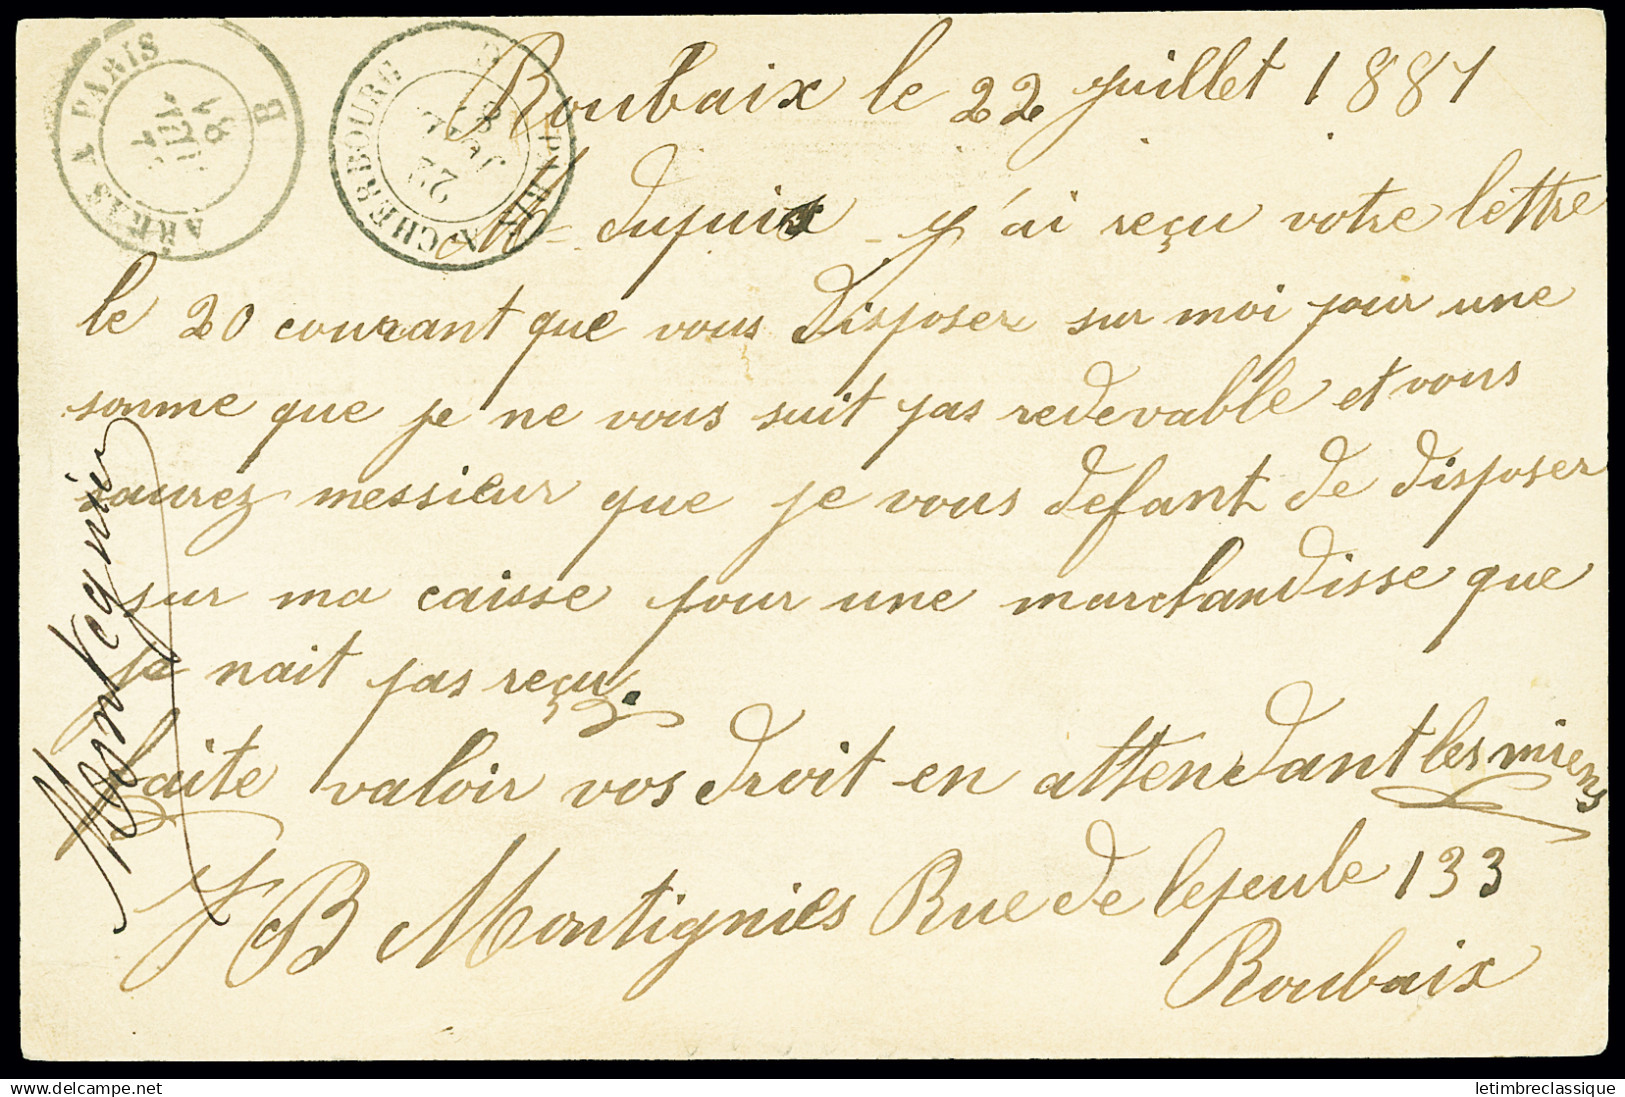 ARRAS A PARIS B
PARIS A CHERBOURG
Roubaix le 22 juillet 1881
Mr Dupuis j'ai reçu votre lettre
le 20 courant que vous disposer sur moi pour une
somme que je ne vous suit pas redevable et vous
saurez messieur que je vous defant de disposer
sur ma caisse pour une marchandisse que
je nait pas reçu.
faite valoir vos droit en attendant les miens
J B Montignies Rue de lepeule 133
Roubaix
Delcampe.net
letimbreclassique